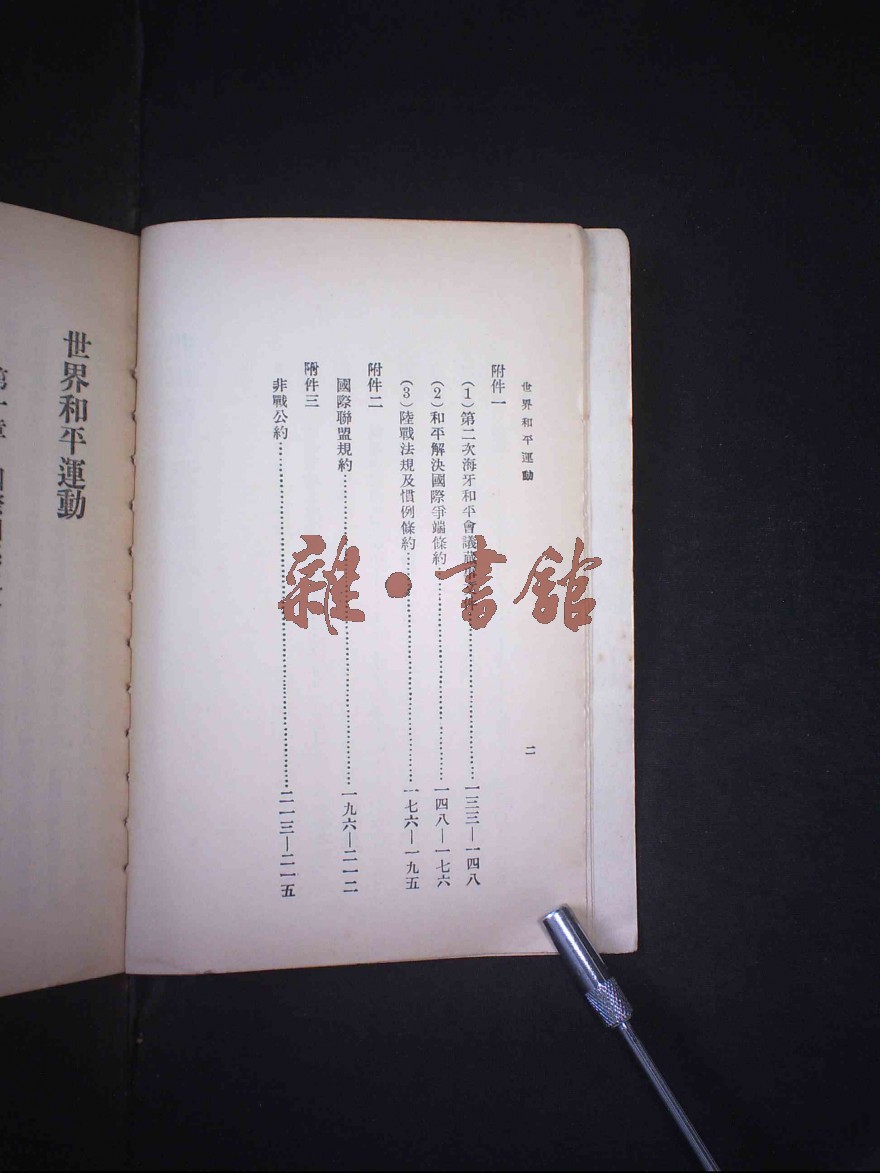 世界和平運動
二
附件一
(1)第二次海牙和平會議……一三三—一四八
(2)和平解決國際爭端條約……一四八—一七六
(3)陸戰法規及慣例條約……一七六—一九五
附件二
國際聯盟規約……一九六—二一二
附件三
非戰公約……二一三—二一五
世界和平運動
第一章
雜·書館